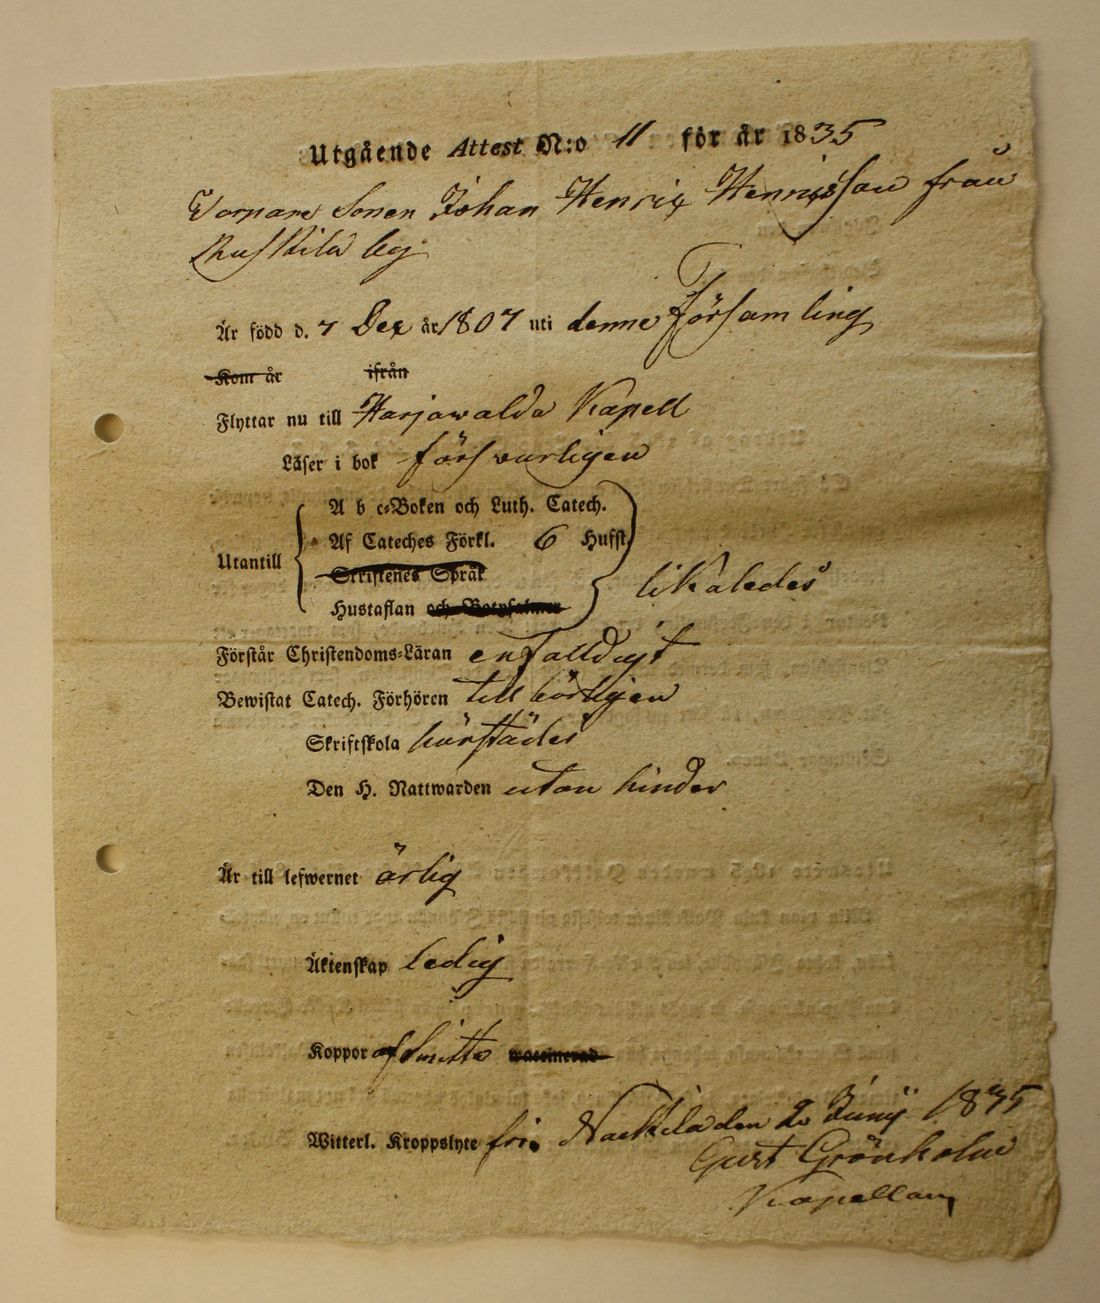 Utgående Attest N:o 11 för år 1835
Sonen Johan Henric Henricsson från
Ruskila by
Är född d. 7 Dec år 1807 uti denne Församling
Kom år ifrån
Flyttar nu till Harjawalda Kapell
Läser i bok försvarligen
A b c-Boken och Luth. Catech.
Af Cateches Förkl. 6 Hufst.
Utantill
Skriftenes Språk
Hustaflan och Botpsalmer likaledes
Förstår Christendoms-Läran enfalldigt
Bewistat Catech. Förhören tillbörligen
Skriftskola härstädes
Den H. Nattwarden utan hinder
Är till lefwernet ärlig
Äktenskap ledig
Koppor af Smitta waccinerad
Witterl. Kroppslyte fri. Nackila den 2 Junij 1835
Gust Grönholm
Kapellan